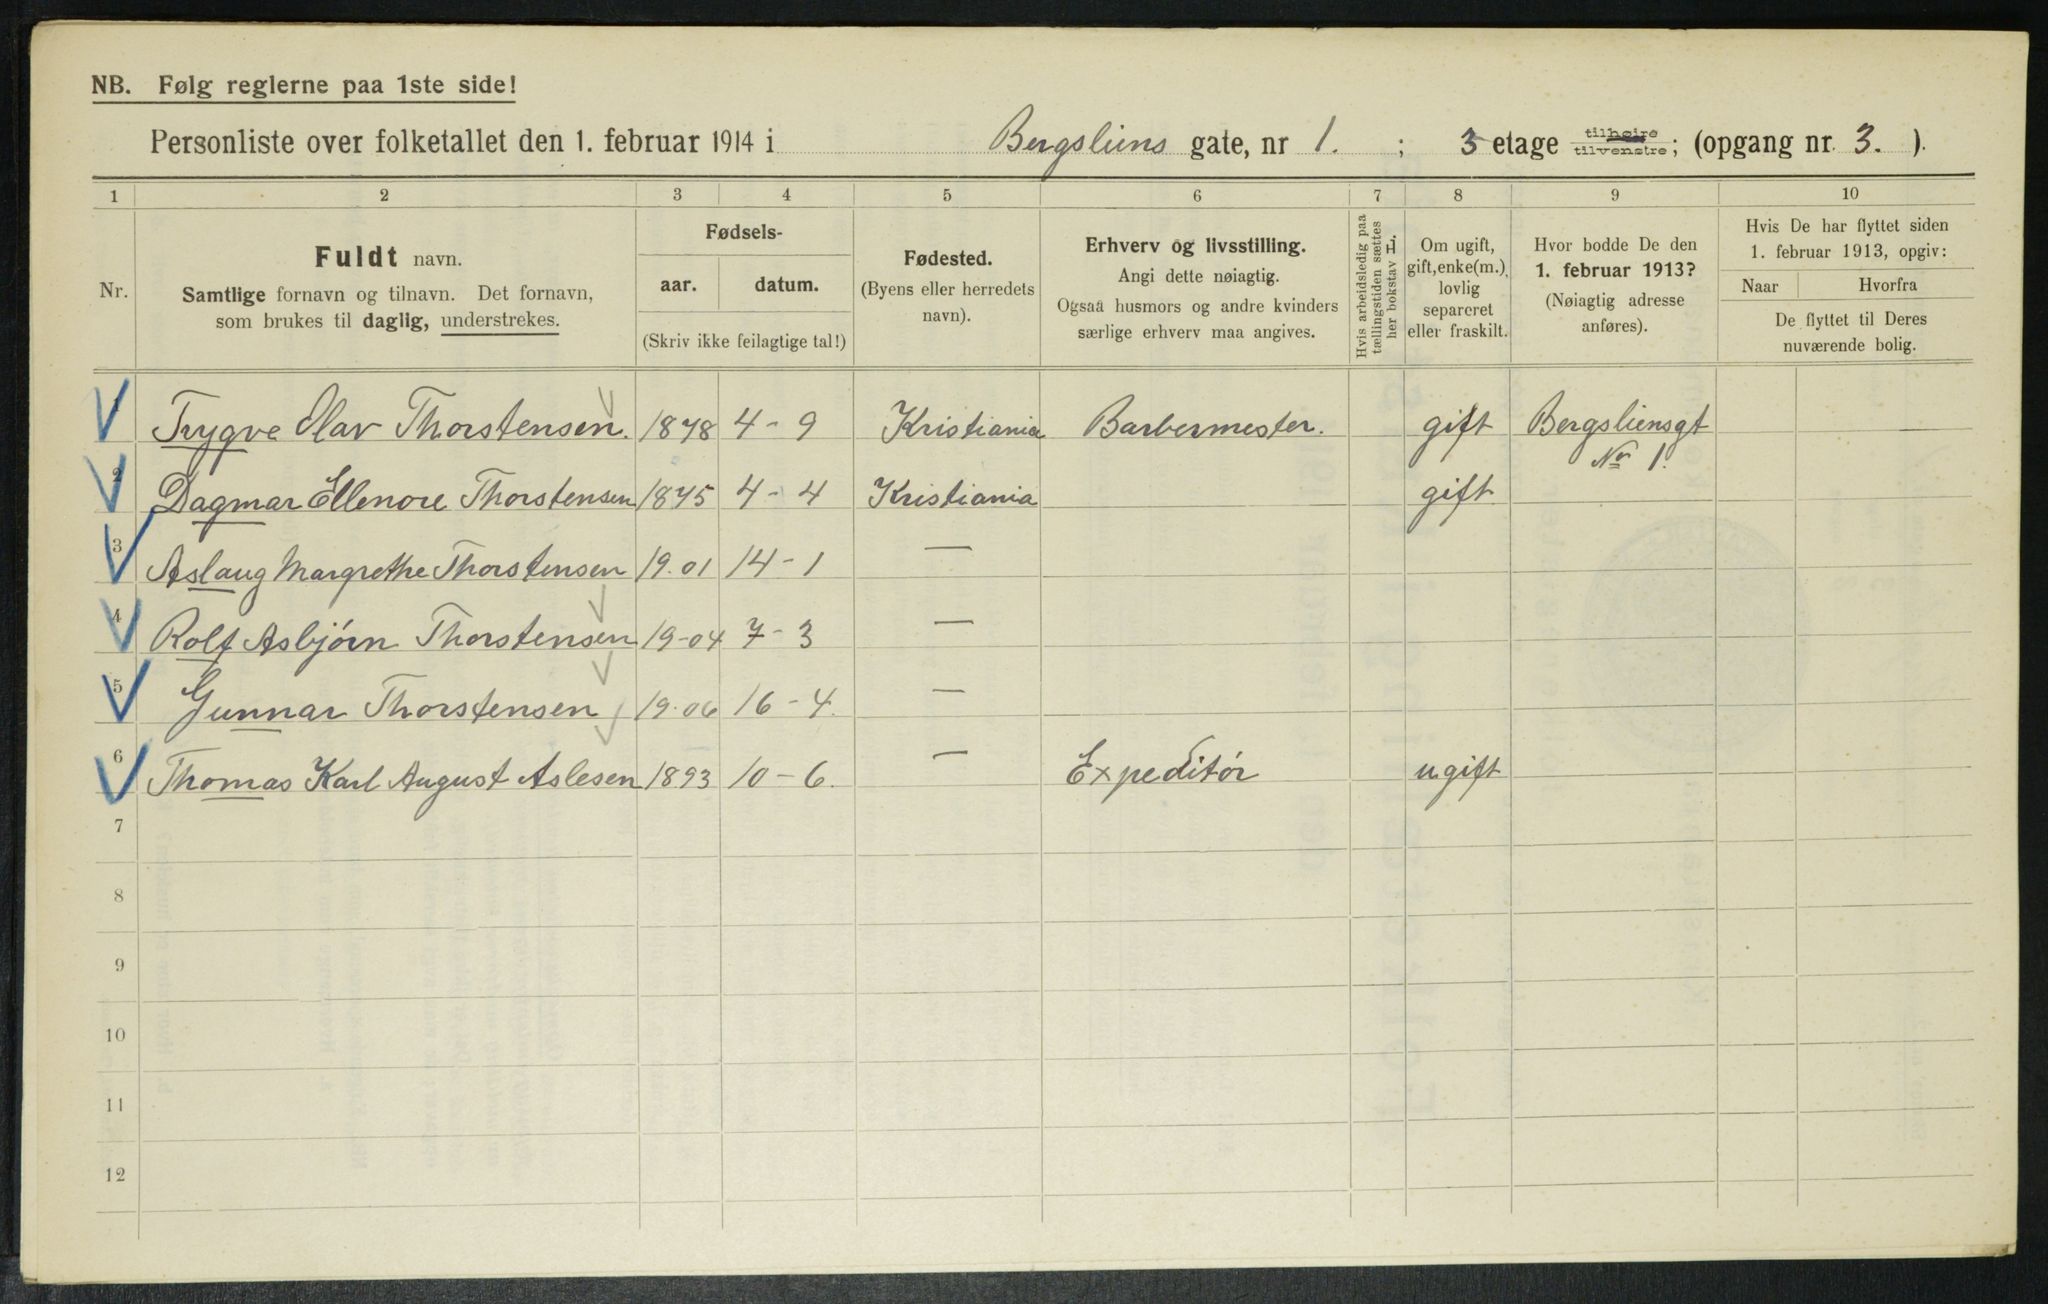 NB. Følg reglerne paa 1ste side!
Personliste over folketallet den 1. februar 1914 i Bergsliens gate, nr 1. ; 3 etage tilhøire tilvenstre; (opgang nr. 3. ).
1 2 3 4 5 6 7 8 9 10
Nr.
Fuldt navn.
Samtlige fornavn og tilnavn. Det fornavn,
som brukes til daglig, understrekes.
Fødsels-
aar. datum.
(Skriv ikke feilagtige tal!)
Fødested.
(Byens eller herredets
navn).
Erhverv og livsstilling.
Angi dette nøiagtig.
Ogsaa husmors og andre kvinders
særlige erhverv maa angives.
Hvis arbeidsledig paa
tællingstiden sættes
her bokstav L.
Om ugift,
gift, enke(m.),
lovlig
separeret
eller fraskilt.
Hvor bodde De den
1. februar 1913?
(Nøiagtig adresse
anføres).
Hvis De har flyttet siden
1. februar 1913, opgiv:
Naar Hvorfra
De flyttet til Deres
nuværende bolig.
1 Trygve Olav Thorstensen. 1878 4-9 Kristiania Barbermester. gift Bergsliensgt
No 1.
2 Dagmar Ellenore Thorstensen 1875 4-4 Kristiania gift
3 Aslaug Margrethe Thorstensen 19.01 14-1 —
4 Rolf Asbjórn Thorstensen 19-04 7-3 —
5 Gunnar Thorstensen 19.06 16-4. —
6 Thomas Karl August Aslesen 1893 10-6. — Expeditór ugift
7
8
9
10
11
12